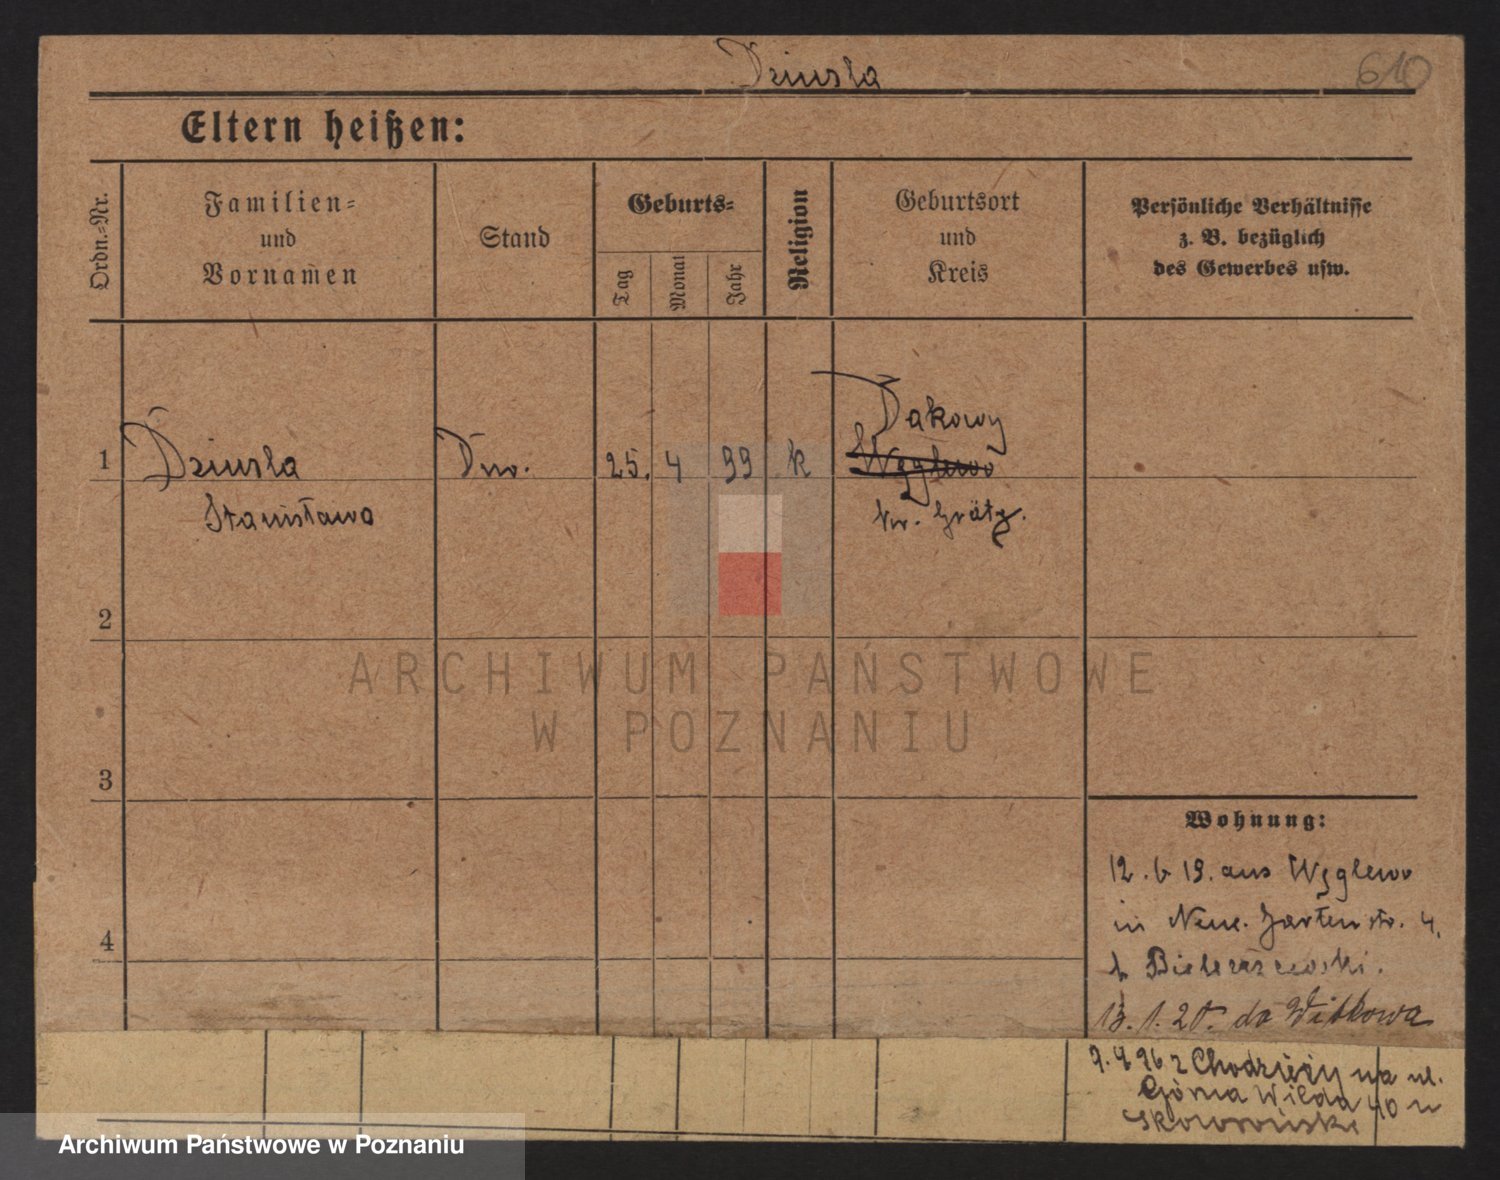 Dziurla
610
Eltern heißen:
Ordn.=Nr.
Familien=
und
Vornamen
Stand
Geburts=
Tag
Monat
Jahr
Religion
Geburtsort
und
Kreis
Persönliche Verhältnisse
z. B. bezüglich
des Gewerbes usw.
Dakowy
1 Dziurla 25. 4 99 k Węglewo
Stanisława Kr. Grätz.
2
ARCHIWUM PAŃSTWOWE
W POZNANIU
3
Wohnung:
12. 6 19. aus Węglewo
in Neue. Gartenstr. 4.
4
b Bieleraszewski.
13. 1. 20. do Witkowa
9. 4 26 z Chodzieży na ul.
Górna Wilda 40 u
Skowroński
Archiwum Państwowe w Poznaniu